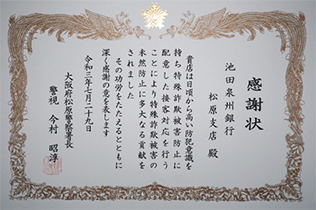 感謝状
池田泉州銀行
松原支店 殿
貴店は日頃から高い防犯意識を
持ち特殊詐欺被害防止に
配意した接客対応を行う
ことにより特殊詐欺被害の
未然防止に多大なる貢献を
されました
その功労をたたえるとともに
深く感謝の意を表します
令和三年七月二十九日
大阪府松原警察署長
警視 今村 昭淳